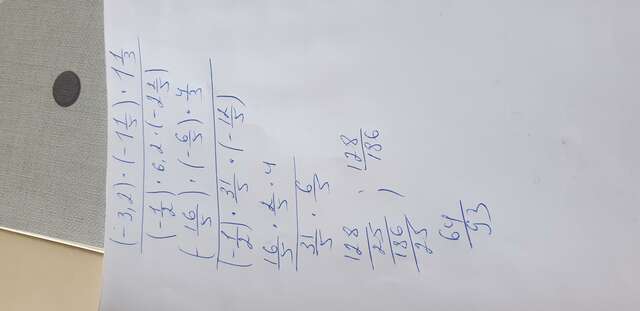 (-3,2)·(-1 1/5)·1 1/3
(-1/2)·6,2·(-2 2/5)
(-16/5)·(-6/5)·4/3
(-1/2)·31/5·(-12/5)
16/5·2/5·4
31/5·6/5
128/25 ; 128/186
186/25
64/93